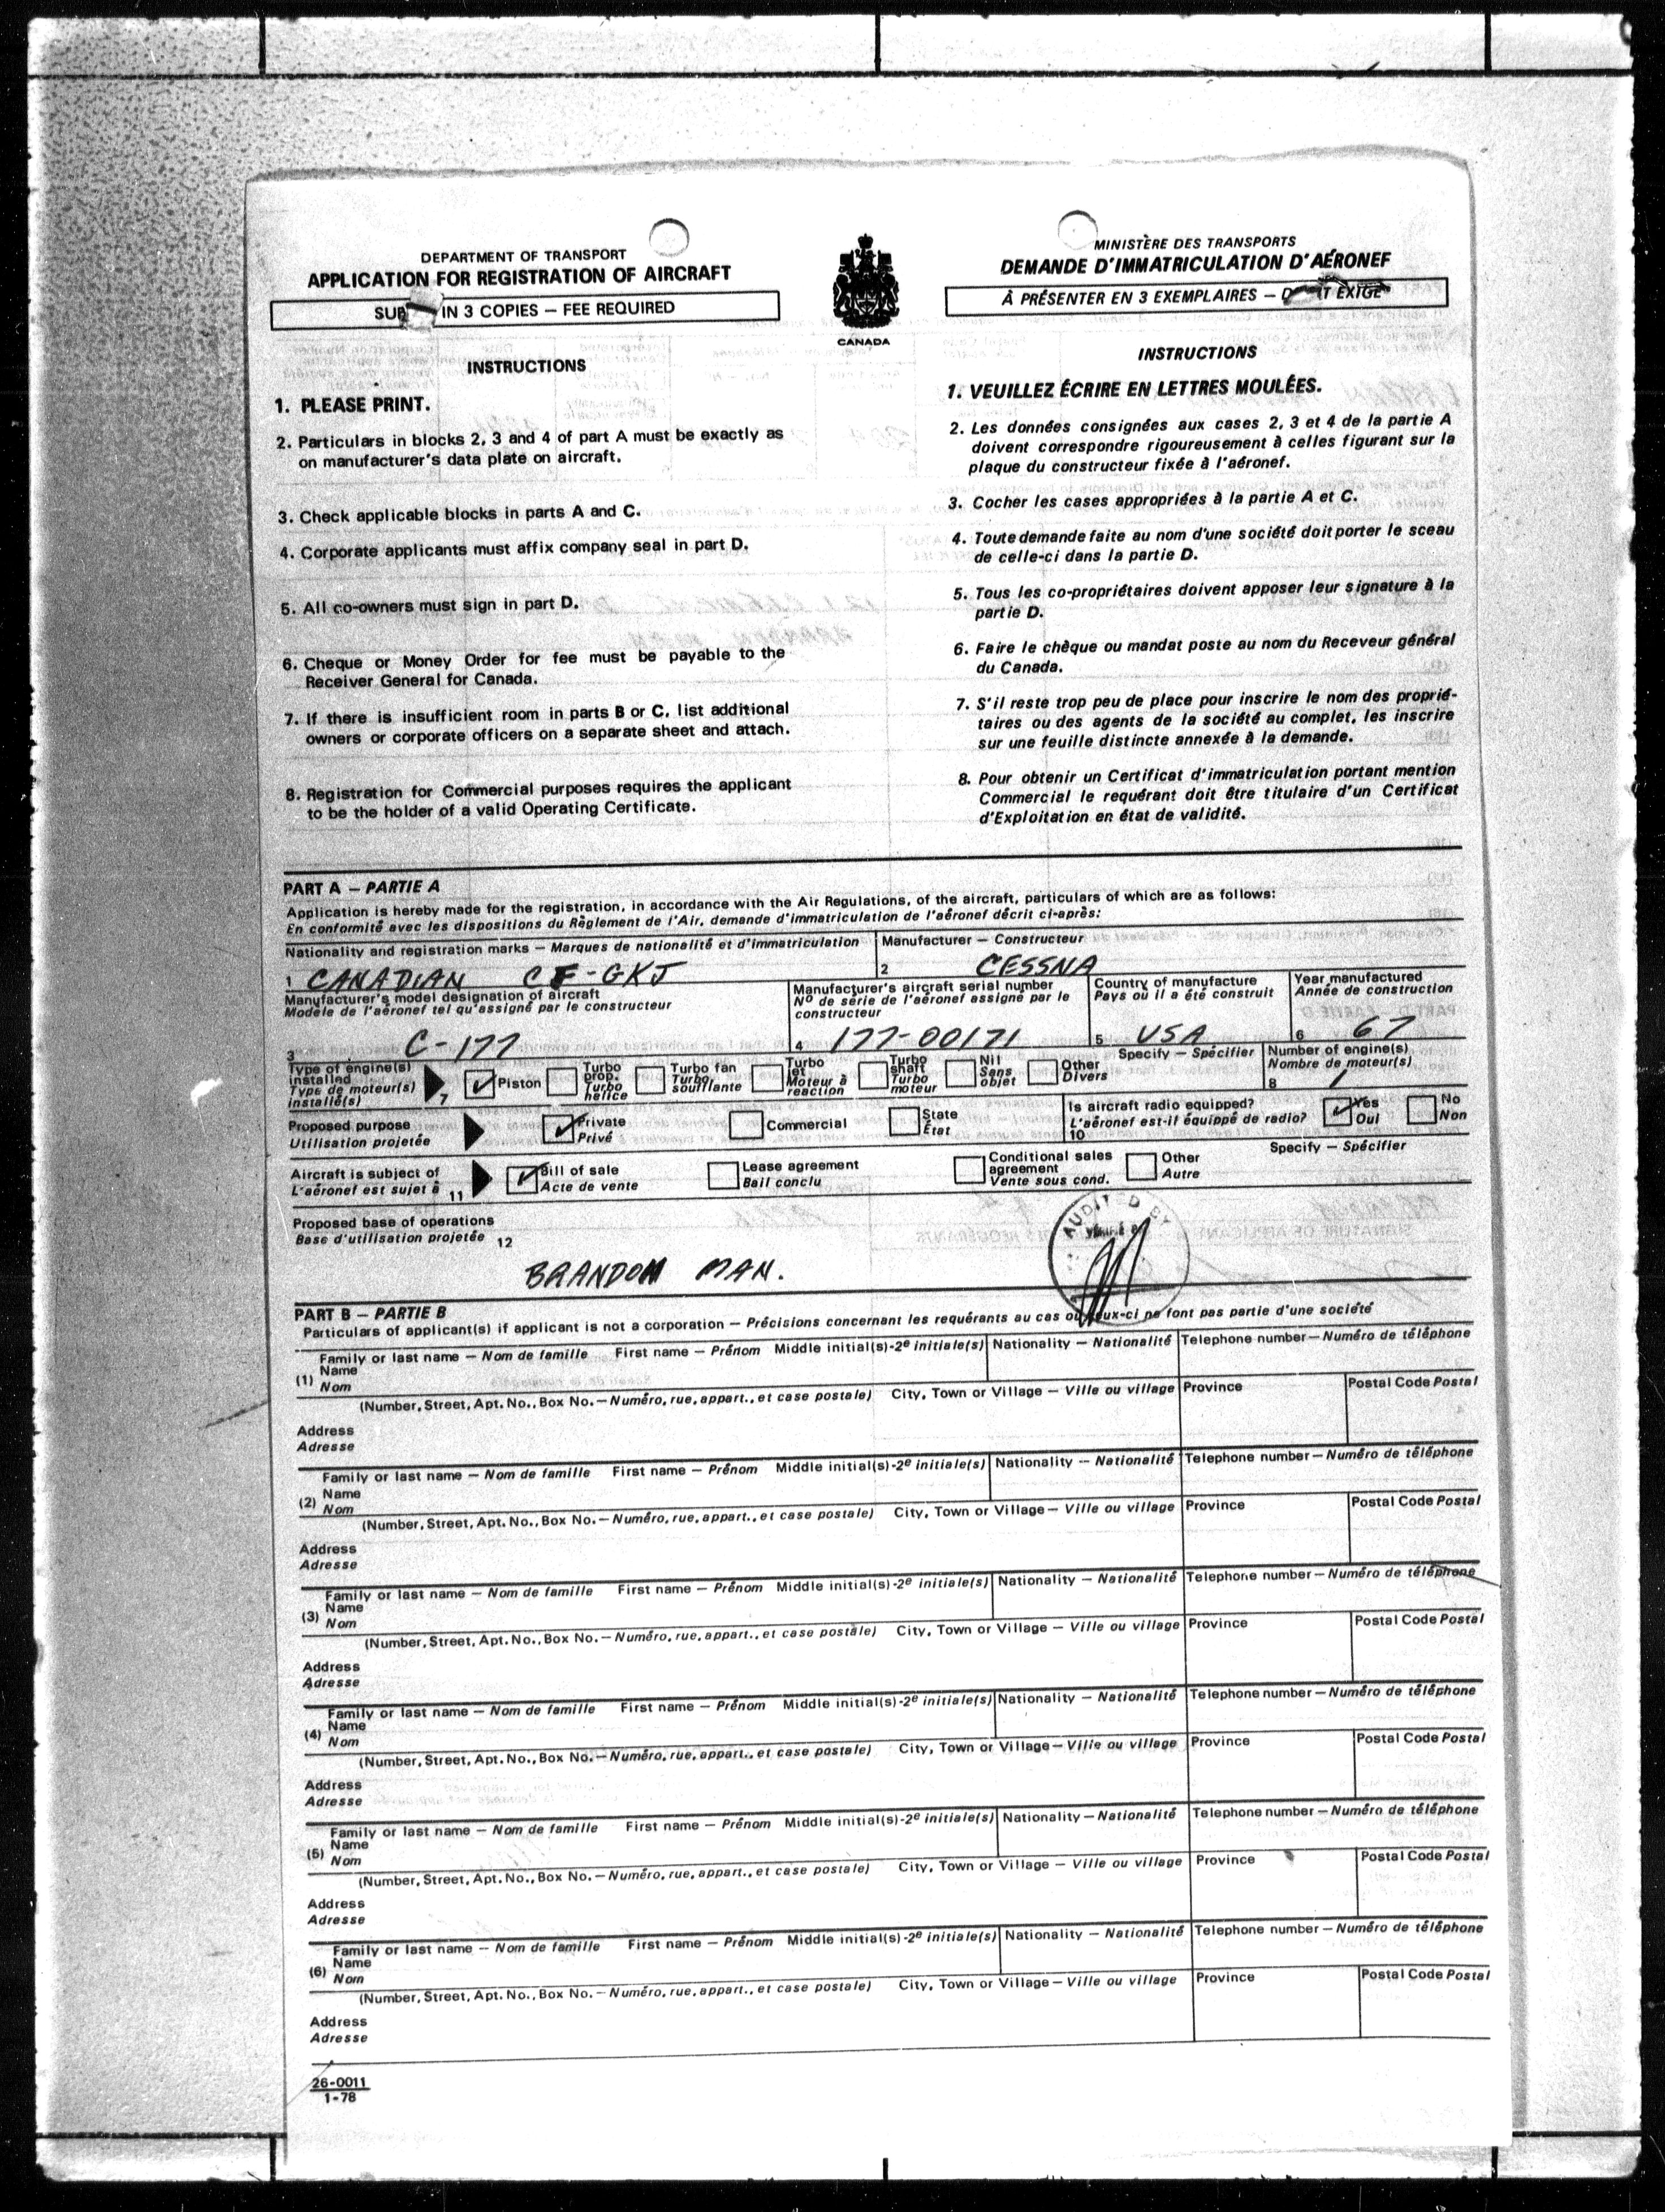 DEPARTMENT OF TRANSPORT
APPLICATION FOR REGISTRATION OF AIRCRAFT
IN 3 COPIES — FEE REQUIRED
CANADA
MINISTÈRE DES TRANSPORTS
DEMANDE D'IMMATRICULATION D'AÉRONEF
À PRÉSENTER EN 3 EXEMPLAIRES — EXIGÉ
INSTRUCTIONS
1. PLEASE PRINT.
2. Particulars in blocks 2, 3 and 4 of part A must be exactly as
on manufacturer's data plate on aircraft.
3. Check applicable blocks in parts A and C.
4. Corporate applicants must affix company seal in part D.
5. All co-owners must sign in part D.
6. Cheque or Money Order for fee must be payable to the
Receiver General for Canada.
7. If there is insufficient room in parts B or C, list additional
owners or corporate officers on a separate sheet and attach.
8. Registration for Commercial purposes requires the applicant
to be the holder of a valid Operating Certificate.
INSTRUCTIONS
1. VEUILLEZ ÉCRIRE EN LETTRES MOULÉES.
2. Les données consignées aux cases 2, 3 et 4 de la partie A
doivent correspondre rigoureusement à celles figurant sur la
plaque du constructeur fixée à l'aéronef.
3. Cocher les cases appropriées à la partie A et C.
4. Toute demande faite au nom d'une société doit porter le sceau
de celle-ci dans la partie D.
5. Tous les co-propriétaires doivent apposer leur signature à la
partie D.
6. Faire le chèque ou mandat poste au nom du Receveur général
du Canada.
7. S'il reste trop peu de place pour inscrire le nom des proprié-
taires ou des agents de la société au complet, les inscrire
sur une feuille distincte annexée à la demande.
8. Pour obtenir un Certificat d'immatriculation portant mention
Commercial le requérant doit être titulaire d'un Certificat
d'Exploitation en état de validité.
PART A — PARTIE A
Application is hereby made for the registration, in accordance with the Air Regulations, of the aircraft, particulars of which are as follows:
En conformité avec les dispositions du Règlement de l'Air, demande d'immatriculation de l'aéronef décrit ci-après:
Nationality and registration marks — Marques de nationalité et d'immatriculation
1 CANADIAN CF-GKJ
Manufacturer — Constructeur
2 CESSNA
Manufacturer's model designation of aircraft
Modèle de l'aéronef tel qu'assigné par le constructeur
3 C-177
Manufacturer's aircraft serial number
Nº de série de l'aéronef assigné par le
constructeur
4 177-00171
Country of manufacture
Pays où il a été construit
5 USA
Year manufactured
Année de construction
6 67
Type of engine(s)
installed
Type de moteur(s)
installé(s)
7
Piston
Turbo
prop.
Turbo
hélice
Turbo fan
Turbo
soufflante
Turbo
jet
Moteur à
réaction
Turbo
shaft
Turbo
moteur
Nil
Sans
objet
Other
Divers
Specify — Spécifier
Number of engine(s)
Nombre de moteur(s)
8 1
Proposed purpose
Utilisation projetée
Private
Privé
Commercial
State
État
Is aircraft radio equipped?
L'aéronef est-il équippé de radio?
10
Yes
Oui
No
Non
Aircraft is subject of
L'aéronef est sujet à 11
Bill of sale
Acte de vente
Lease agreement
Bail conclu
Conditional sales
agreement
Vente sous cond.
Other
Autre
Specify — Spécifier
Proposed base of operations
Base d'utilisation projetée 12
BRANDON MAN.
PART B — PARTIE B
Particulars of applicant(s) if applicant is not a corporation — Précisions concernant les requérants au cas où ceux-ci ne font pas partie d'une société
Family or last name — Nom de famille First name — Prénom Middle initial(s)-2e initiale(s) Nationality — Nationalité Telephone number — Numéro de téléphone
(1) Name
Nom
(Number, Street, Apt. No., Box No. — Numéro, rue, appart., et case postale) City, Town or Village — Ville ou village Province Postal Code Postal
Address
Adresse
Family or last name — Nom de famille First name — Prénom Middle initial(s)-2e initiale(s) Nationality — Nationalité Telephone number — Numéro de téléphone
(2) Name
Nom
(Number, Street, Apt. No., Box No. — Numéro, rue, appart., et case postale) City, Town or Village — Ville ou village Province Postal Code Postal
Address
Adresse
Family or last name — Nom de famille First name — Prénom Middle initial(s)-2e initiale(s) Nationality — Nationalité Telephone number — Numéro de téléphone
(3) Name
Nom
(Number, Street, Apt. No., Box No. — Numéro, rue, appart., et case postale) City, Town or Village — Ville ou village Province Postal Code Postal
Address
Adresse
Family or last name — Nom de famille First name — Prénom Middle initial(s)-2e initiale(s) Nationality — Nationalité Telephone number — Numéro de téléphone
(4) Name
Nom
(Number, Street, Apt. No., Box No. — Numéro, rue, appart., et case postale) City, Town or Village — Ville ou village Province Postal Code Postal
Address
Adresse
Family or last name — Nom de famille First name — Prénom Middle initial(s)-2e initiale(s) Nationality — Nationalité Telephone number — Numéro de téléphone
(5) Name
Nom
(Number, Street, Apt. No., Box No. — Numéro, rue, appart., et case postale) City, Town or Village — Ville ou village Province Postal Code Postal
Address
Adresse
Family or last name — Nom de famille First name — Prénom Middle initial(s)-2e initiale(s) Nationality — Nationalité Telephone number — Numéro de téléphone
(6) Name
Nom
(Number, Street, Apt. No., Box No. — Numéro, rue, appart., et case postale) City, Town or Village — Ville ou village Province Postal Code Postal
Address
Adresse
26-0011
1-78